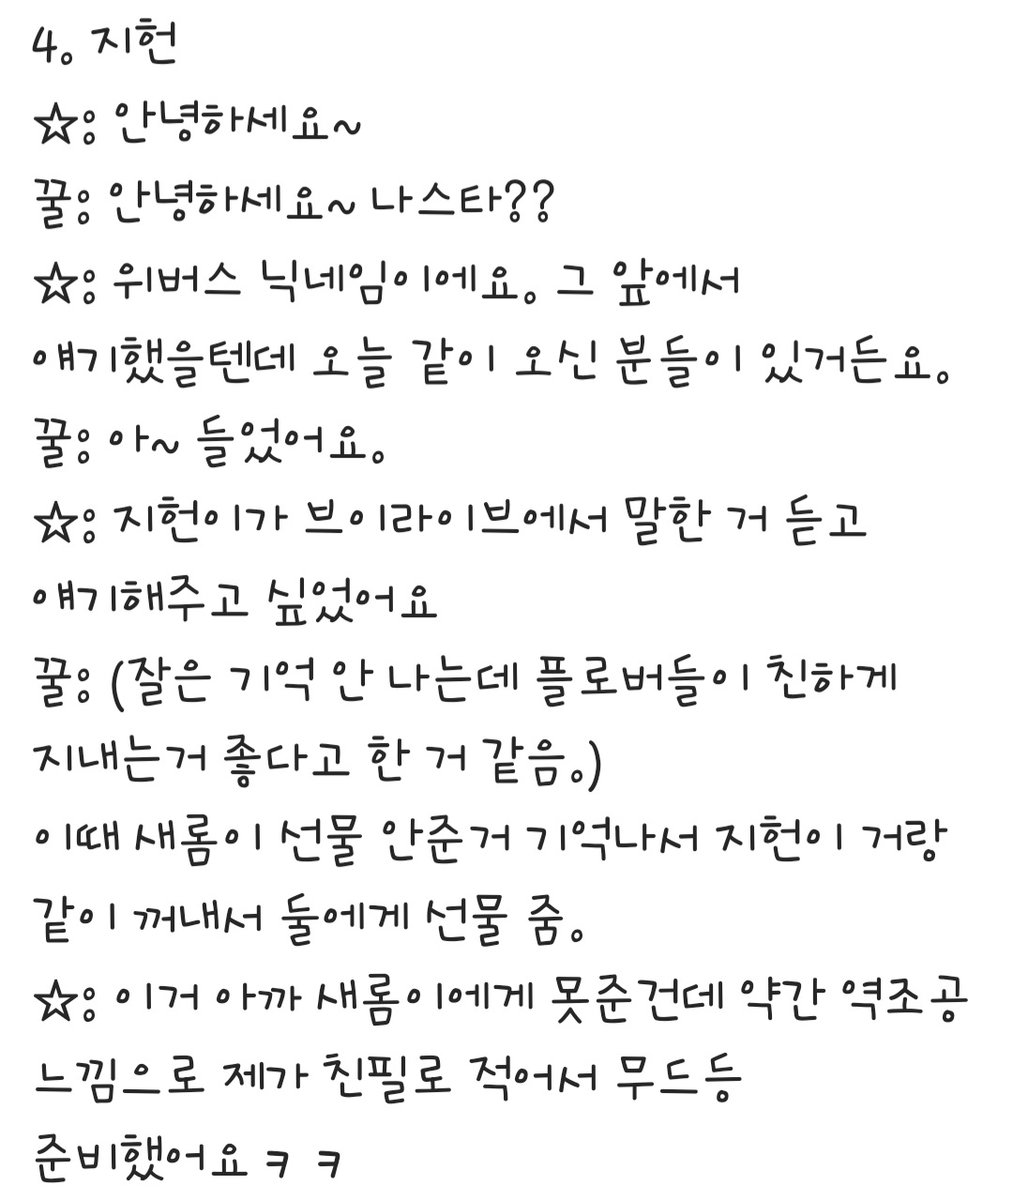 4. 지헌
☆: 안녕하세요~
꿀: 안녕하세요~ 나스타??
☆: 위버스 닉네임이에요. 그 앞에서
얘기했을텐데 오늘 같이 오신 분들이 있거든요.
꿀: 아~ 들었어요.
☆: 지헌이가 브이라이브에서 말한 거 듣고
얘기해주고 싶었어요
꿀: (잘은 기억 안 나는데 플로버들이 친하게
지내는거 좋다고 한 거 같음.)
이때 새롬이 선물 안준거 기억나서 지헌이 거랑
같이 꺼내서 둘에게 선물 줌.
☆: 이거 아까 새롬이에게 못준건데 약간 역조공
느낌으로 제가 친필로 적어서 무드등
준비했어요 ㅋ ㅋ